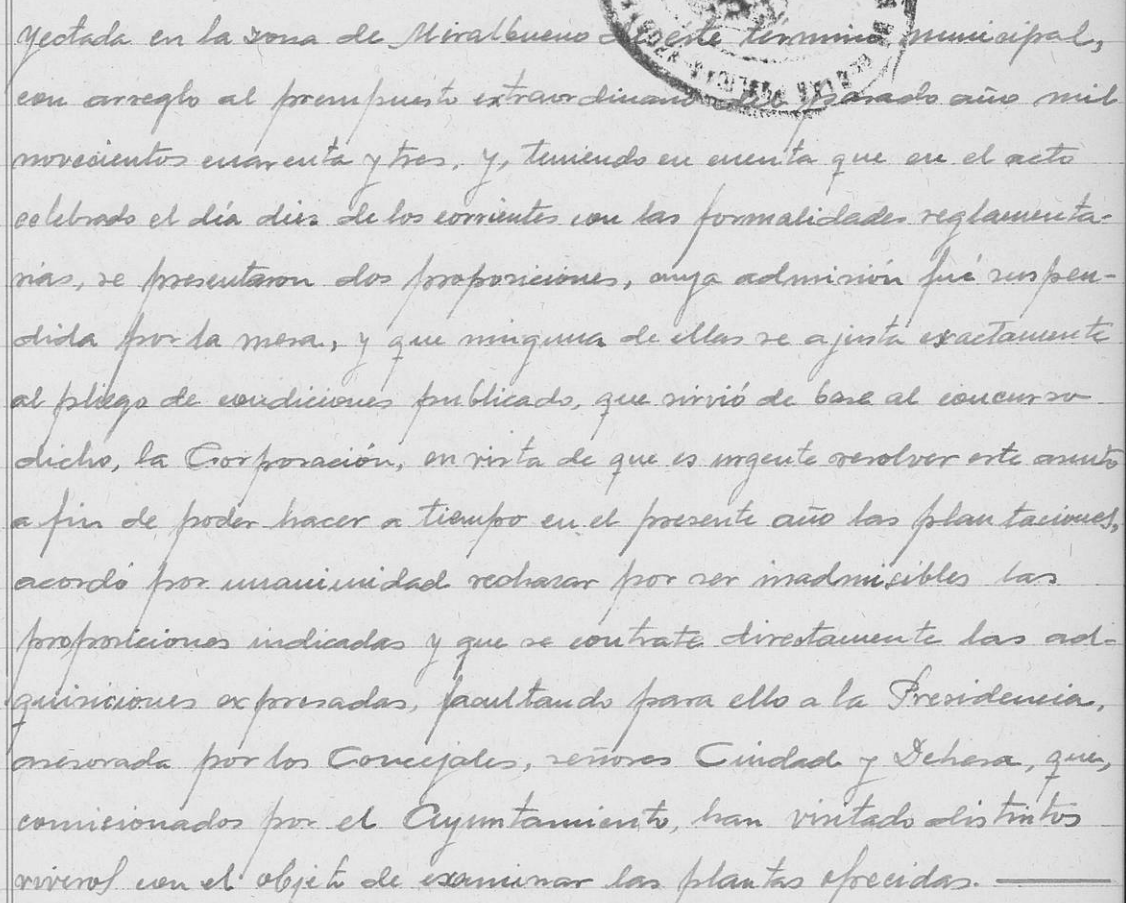 yectada en la zona de Miralbueno de este término municipal,
con arreglo al presupuesto extraordinario del pasado año mil
novecientos cuarenta y tres, y, teniendo en cuenta que en el acto
celebrado el día diez de los corrientes con las formalidades reglamenta-
rias, se presentaron dos proposiciones, cuya admisión fué suspen-
dida por la mesa, y que ninguna de ellas se ajusta exactamente
al pliego de condiciones publicado, que sirvió de base al concurso
dicho, la Corporación, en vista de que es urgente resolver este asunto
a fin de poder hacer a tiempo en el presente año las plantaciones,
acordó por unanimidad rechazar por ser inadmisibles las
proposiciones indicadas y que se contrate directamente las ad-
quisiciones expresadas, facultando para ello a la Presidencia,
asesorada por los Concejales, señores Ciudad y Dehesa, que,
comisionados por el Ayuntamiento, han visitado distintos
viveros con el objeto de examinar las plantas ofrecidas.